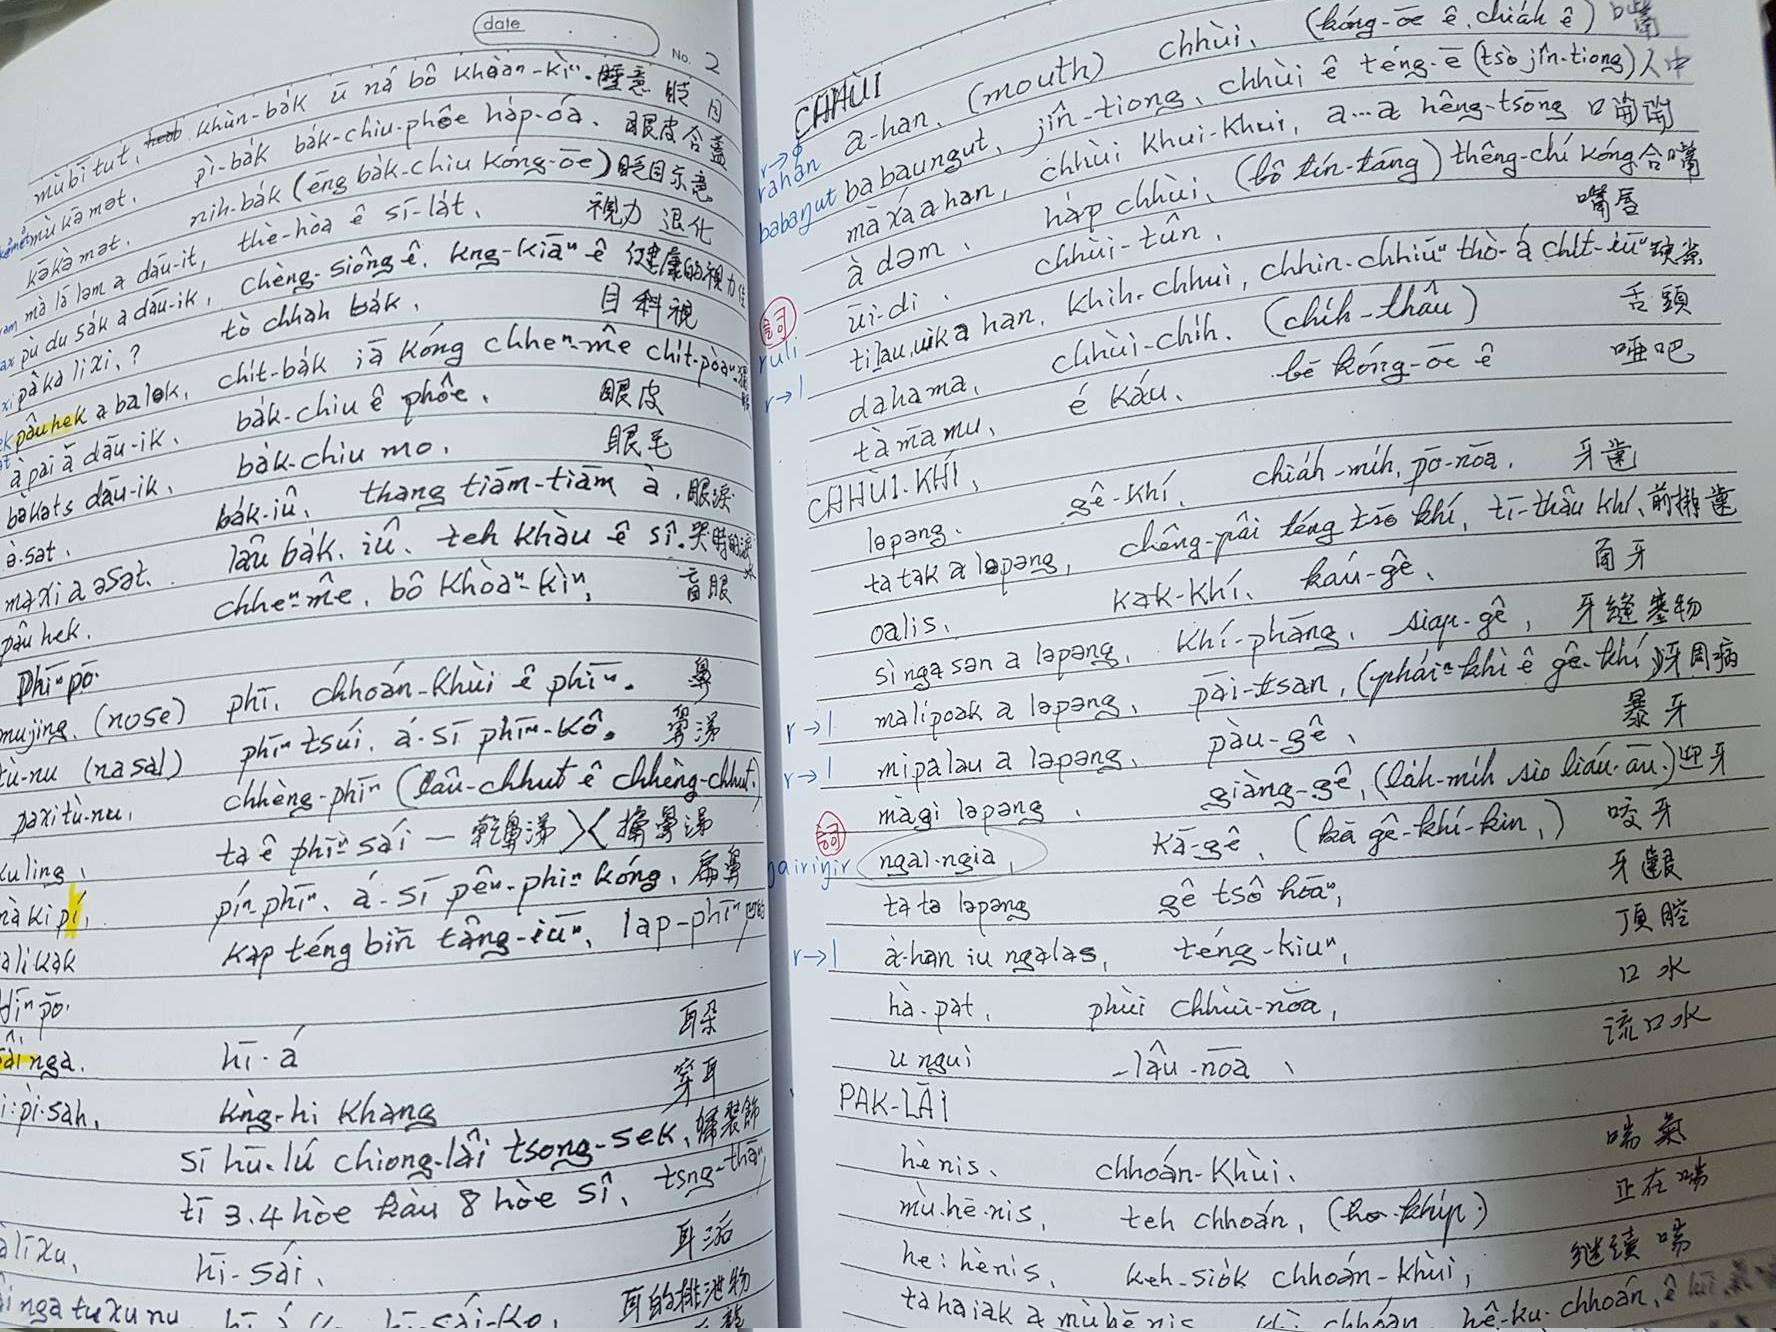 date
No. 2
mùbitut, khùn-ba̍k ū ná bô khòaⁿ-kìⁿ. 睡意
mùkāmət, pì-ba̍k ba̍k-chiu-phôe ha̍p-óa. 眼皮合蓋
kəkàmət. nih-ba̍k (ēng ba̍k-chiu kóng-ōe) 眨目示意
mà lā ləm a dāu-it, thè-hòa ê sī-la̍t. 視力 退化
pù du sák a dāu-ik, chèng-siông ê. kng-kiāⁿ ê 健康的視力
pàka lixi,? tò chhah ba̍k. 目斜視
pâuhek a balək, chi̍t-ba̍k iā kóng chheⁿ-mê chi̍t-pòaⁿ.
à pai ā dāu-ik. ba̍k-chiu ê phôe. 眼皮
bəkats dāu-ik, ba̍k-chiu mo. 眼毛
ə̀-sat, ba̍k-iû, thang tiām-tiām à. 眼淚
maxi a əsat. lâu ba̍k. iû. teh khàu ê sî. 哭時的淚水
pâu hek. chheⁿ-mê, bô khòaⁿ-kìⁿ, 盲眼
phīⁿ-pō͘
mujing, (nose) phī, chhoán-khùi ê phīⁿ. 鼻
tù-nu (nasal) phīⁿ tsúi, á-sī phīⁿ-kô. 鼻涕
paxitù-nu, chhèng-phīⁿ (lâu-chhut ê chhèng-chhut.)
xuling, ta ê phīⁿ sái — 乾鼻涕 擤鼻涕
nàkipí, píⁿ phīⁿ, á-sī pêⁿ-phīⁿ kóng, 扁鼻
alikak kap téng bīn tâng-iūⁿ, lap-phīⁿ
hīⁿ pō͘
āinga. hī-á 耳朵
i:pi-sah, kǹg-hī khang 穿耳
sī hū-lú chiong-lâi tsong-sek, 婦裝飾
tī 3.4 hòe kàu 8 hòe sî, tsng-thāⁿ
alīxu, hī-sái, 耳垢
ainga tuxunu 耳的排泄物
CHHÙI
a-han, (mouth) chhùi, (kóng-ōe ê, chia̍h ê) 嘴
r→ø
rahan
babaungut, jîn-tiong, chhùi ê téng-ē (tsò jîn-tiong) 人中
babaŋut
mà xá a han, chhùi khui-khui, a...a hêng-tsōng 口開開
à dəm, ha̍p chhùi, (bô tín-tāng) thêng-chí kóng 合嘴
ūi-di, chhùi-tûn, 嘴唇
詞
tilau,uik a han, khih-chhui, chhin-chhiūⁿ thò͘-á chi̍t-iūⁿ 缺嘴
ruli
r→l
dahama, chhùi-chi̍h. (chi̍h-thâu) 舌頭
tà mā mu, é káu, bē kóng-ōe ê 啞吧
CHHÙI-KHÍ,
ləpəng. gê-khí, chia̍h-mi̍h, pō-nōa. 牙齒
ta tak a ləpəng, chêng-pâi téng tsō khí, tī-thâu khí, 前排齒
oalis, kak-khí, káu-gê, 角牙
sì nga sən a ləpəng, khí-phāng, siap-gê, 牙縫塞物
r→l
malipoak a ləpəng, pāi-tsan, (pháiⁿ-khì ê gê-khí) 牙周病
r→l
mipalau a ləpəng, pàu-gê, 暴牙
màgi ləpəng, giàng-gê, (la̍h-mi̍h sio liáu-āu.) 迎牙
詞
ngal-ngia, kā-gê, (kā gê-khí-kin,) 咬牙
ŋairiŋir
ta tə ləpəng gê tsô hōaⁿ, 牙齦
r→l
à-han iu ngalas, téng-kiuⁿ, 頂腔
hà-pat, phùi chhùi-nōa, 口水
u ngui -lâu-nōa, 流口水
PAK-LĀI
hènis, chhoán-khùi. 喘氣
mù-hē-nis, teh chhoán, (ho͘-khip.) 正在喘
he: hènis, keh-sio̍k chhoán-khùi, 繼續喘
tahaiak a mùhē nis hê-ku-chhoán,